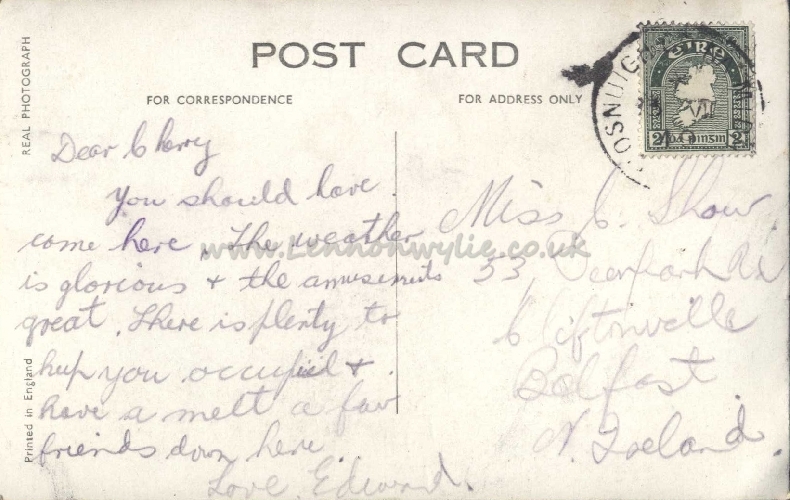 POST CARD
FOR CORRESPONDENCE
FOR ADDRESS ONLY
REAL PHOTOGRAPH
Printed in England
Dear Cherry
You should have
come here. The weather
is glorious + the amusements
great. There is plenty to
keep you occupied +
have a melt a fav
friends down here.
Love Edward.
Miss C. Shaw
53, Deerpark Rd
Cliftonville
Belfast
N. Ireland.
éire
2 2
www.Lennonwylie.co.uk